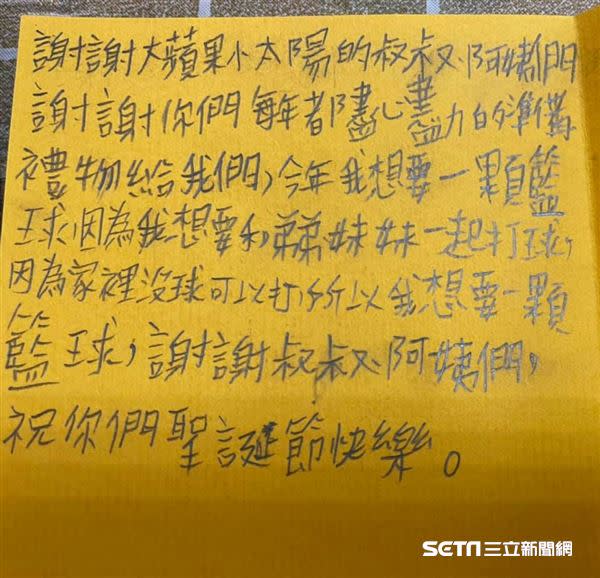 謝謝大蘋果小太陽的叔叔阿姨們
謝謝你們每年都儘心盡力的準備
禮物給我們,今年我想要一顆籃
球,因為我想要和弟妹妹一起打球,
因為家裡沒球可以打,所以我想要一顆
籃球,謝謝叔叔阿姨們,
祝你們聖誕節快樂。
SETN三立新聞網